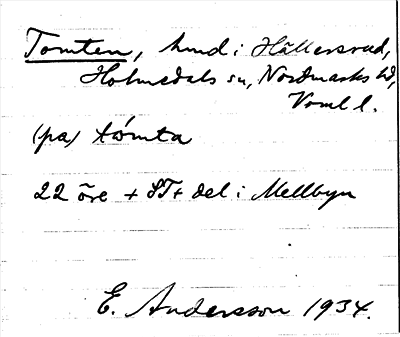 Tomten, hmd i Hällersrud,
Holmedals sn, Nordmarks hd,
Värml l.
(pa) tómta
22 öre + ST+ del i Mellbyn
E. Andersson 1934.